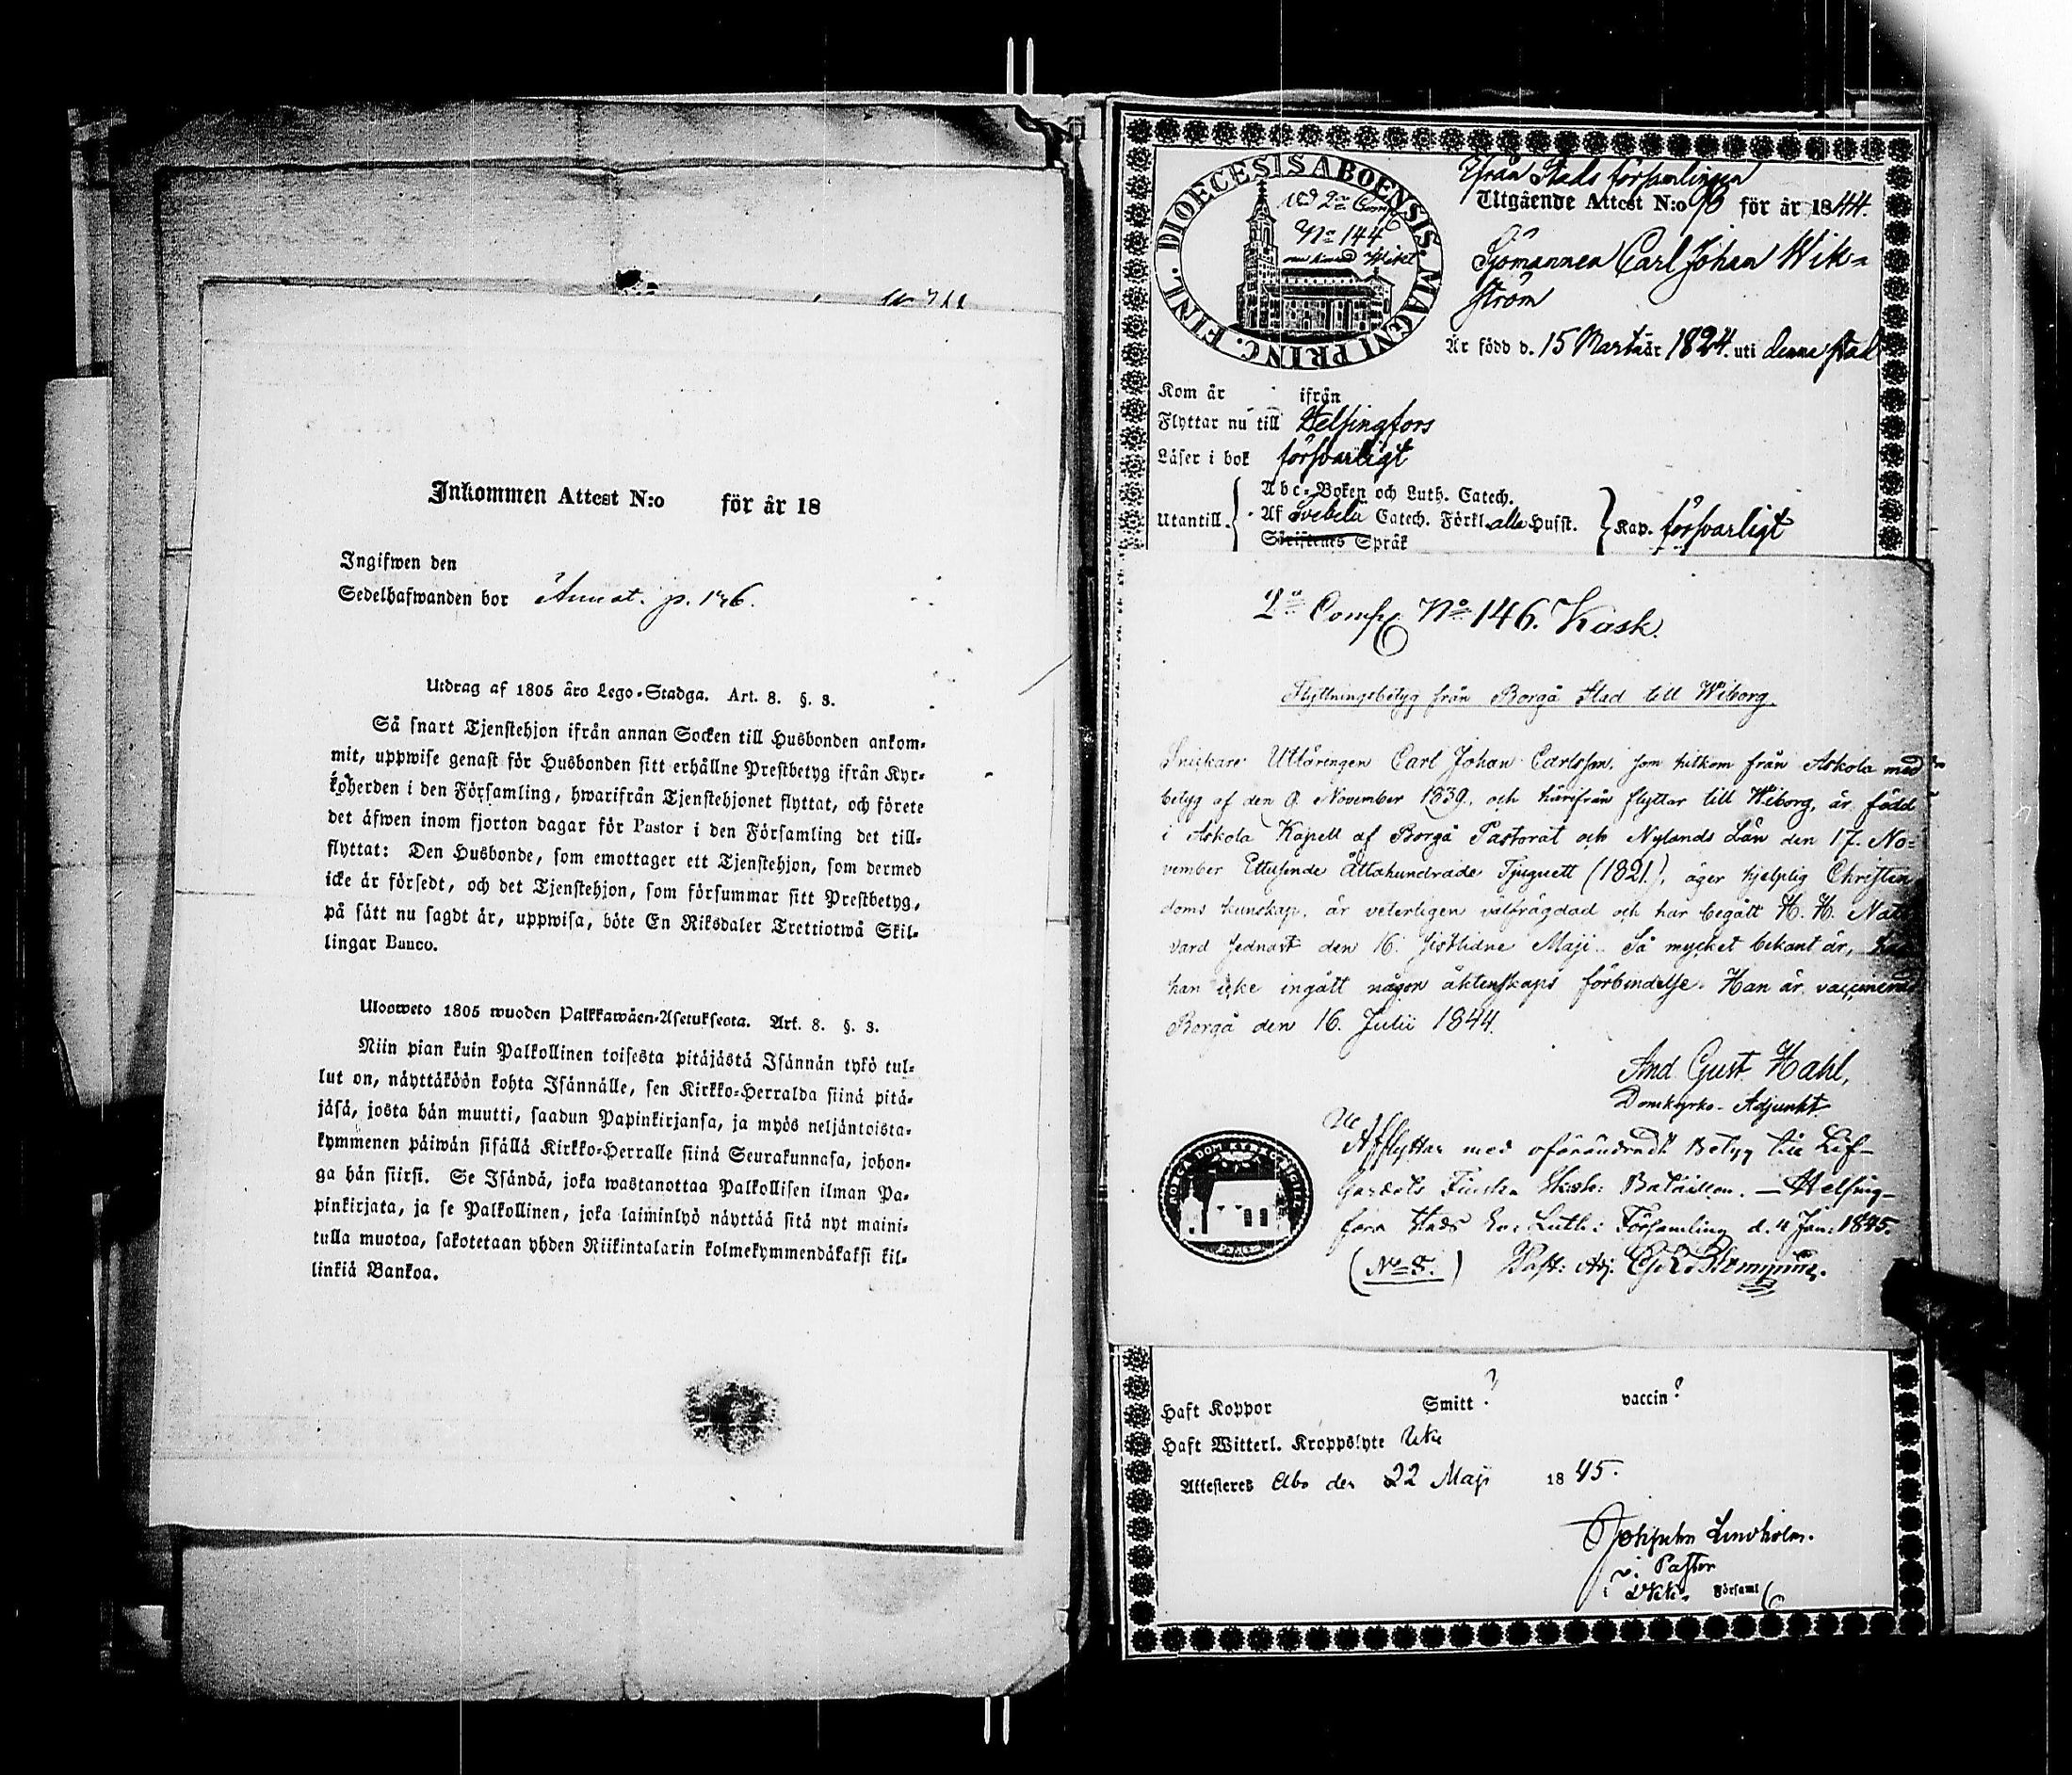 Inkommen Attest N:o för år 18
Ingifwen den
Sedelhafwanden bor Annot. p. 126.
Utdrag af 1805 års Lego-Stadga. Art. 8. §. 3.
Så snart Tjenstehjon ifrån annan Socken till Husbonden ankom-
mit, uppwise genast för Husbonden sitt erhållne Prestbetyg ifrån Kyr-
koherden i den Församling, hwarifrån Tjenstehjonet flyttat, och förete
det äfwen inom fjorton dagar för Pastor i den Församling det till-
flyttat: Den Husbonde, som emottager ett Tjenstehjon, som dermed
icke är försedt, och det Tjenstehjon, som försummar sitt Prestbetyg,
på sätt nu sagdt är, uppwisa, böte En Riksdaler Trettiotwå Skil-
lingar Banco.
Uloswето 1805 wuoden Palkkawäen-Asetuksesta. Art. 8. §. 3.
Niin pian kuin Palkollinen toisesta pitäjästä Isännän tykö tul-
lut on, näyttäköön kohta Isännälle, sen Kirkko-Herralda siinä pitä-
jäsä, josta hän muutti, saadun Papinkirjansa, ja myös neljäntoista-
kymmenen päiwän sisällä Kirkko-Herralle siinä Seurakunnasa, johon-
ga hän siirsi. Se Isändä, joka wastanottaa Palkollisen ilman Pa-
pinkirjata, ja se Palkollinen, joka laiminlyö näyttää sitä nyt maini-
tulla muotoa, sakotetaan yhden Riikintalarin kolmekymmendäkaksi kil-
linkiä Bankoa.
DIOECESIS ABOENSIS. MAGNI PRINC. FINL.
vid 2:a Comp.
No 144
Wikt
Ifrån Stads församlingen
Utgående Attest N:o 96 för år 1844.
Sjömannen Carl Johan Wik-
ström
Är född d. 15 Martii år 1824. uti denne stad
Kom år ifrån
Flyttar nu till Helsingfors
Läser i bok försvarligt
Utantill. Abc-Boken och Luth. Catech.
Af Svebelii Catech. Förkl. alla Husst. Kap. försvarligt
Skriftenes Språk
2:a Comp. No 146. Kask.
Flyttningsbetyg från Borgå Stad till Wiborg.
Snickare Utläringen Carl Johan Carlsson, som hitkom från Askola med
betyg af den 9. November 1839, och härifrån flyttar till Wiborg, är född
i Askola Kapell af Borgå Pastorat och Nylands Län den 17. No-
vember Ettusende Åttahundrade Tjuguett (1821), äger hjelplig Christen
doms kunskap, är veterligen välfrägdad och har begått H. H. Natt
vard sednast den 16. sistlidne Maji. Så mycket bekant är, har
han icke ingått någon äktenskaps förbindelse. Han är vaccinerad
Borgå den 16. Julii 1844.
And. Gust. Hahl,
Domkyrko-Adjunkt
Afflyttar med oförändradt Betyg till Lif-
Gardets Finska Skarp: Bataillon. — Helsing-
fors Stads Ev: Luth: Församling d. 4 Jan: 1845.
(No 5.) Past: Adj.
Haft Koppor Smitt? vaccin?
Haft Witterl. Kroppslyte Icke
Attesteres Åbo den 22 Maji 1845.
Lindholm.
v. Pastor
i Församl